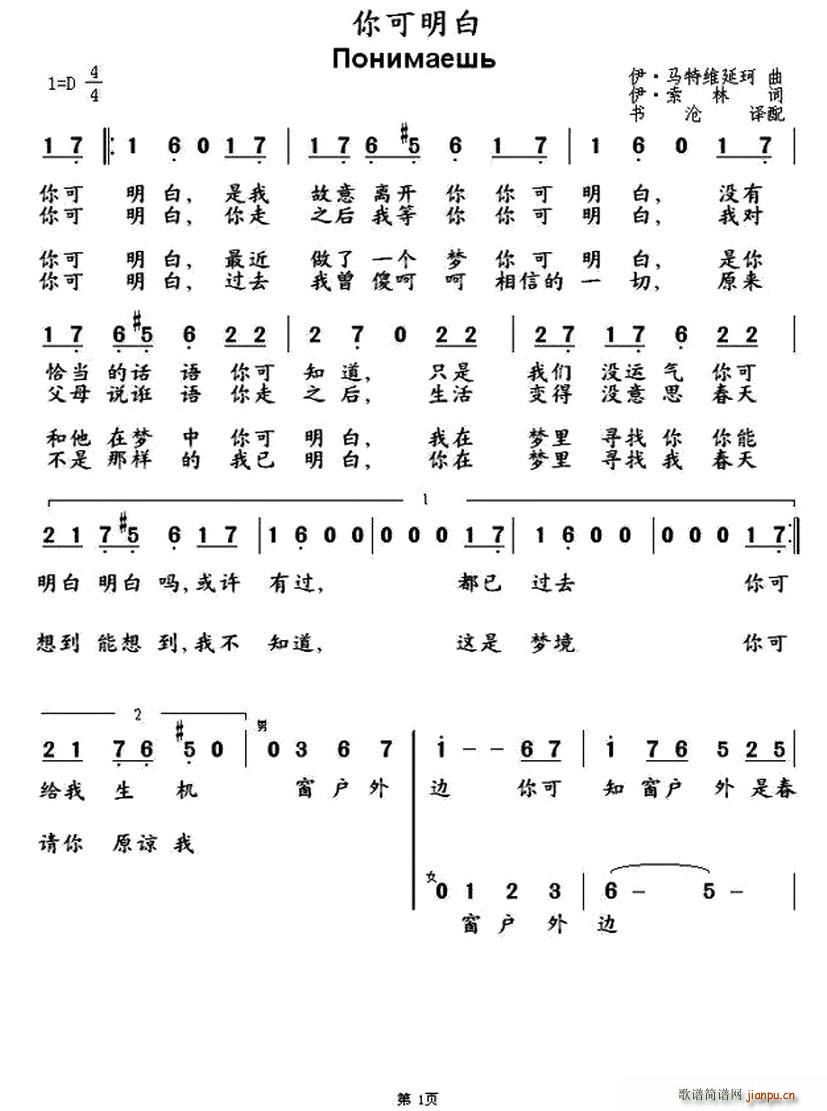 你可明白
Понимаешь
1=D 4/4
伊·马特维延珂 曲
伊·索林 词
书沧 译配
1 7 |: 1 6 0 1 7 | 1 7 6 #5 6 1 7 | 1 6 0 1 7 |
你可 明白, 是我 故意离开你 你可明白, 没有
你可 明白, 你走 之后我等你 你可明白, 我对
你可 明白, 最近 做了一个梦 你可明白, 是你
你可 明白, 过去 我曾傻呵呵 相信的一切, 原来
1 7 6 #5 6 2 2 | 2 7 0 2 2 | 2 7 1 7 6 2 2 |
恰当的话语你可 知道, 只是 我们没运气你可
父母说诳语你走 之后, 生活 变得没意思春天
和他在梦中你可 明白, 我在 梦里寻找你你能
不是那样的我已 明白, 你在 梦里寻找我春天
1
2 1 7 #5 6 1 7 | 1 6 0 0 | 0 0 0 1 7 | 1 6 0 0 | 0 0 0 1 7 :|
明白明白吗,或许 有过, 都已 过去 你可
想到能想到,我不 知道, 这是 梦境 你可
2
2 1 7 6 #5 0 | 男 0 3 6 7 | 1 - - 6 7 | 1 7 6 5 2 5 |
给我生机 窗户外 边 你可 知窗户外是春
请你原谅我
女 0 1 2 3 | 6 - 5 - |
窗户外 边
第 1页
歌谱简谱网 jianpu.cn